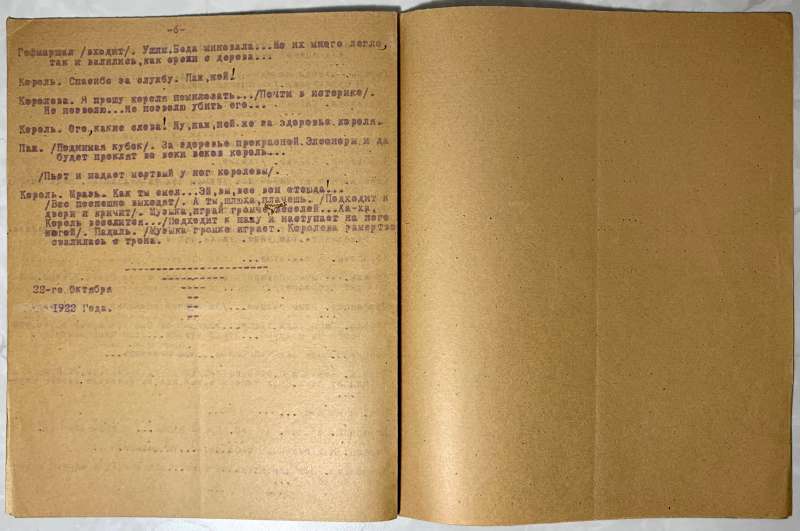 -6-
Гофмаршал /входит/. Ушли.Беда миновала...Но их много легло,
так и валились,как орехи с дерева...
Король. Спасибо за службу. Паж,пой!
Королева. Я прошу короля помиловать.../Почти в истерике/.
Не позволю...Не позволю убить его...
Король. Ого,какие слова! Ну,паж,пей же за здоровье короля.
Паж. /Поднимая кубок/. За здоровье прекрасной Элеоноры и да
будет проклят во веки веков король...
/Пьет и падает мертвый у ног королевы/.
Король. Мразь. Как ты смел...Эй,вы,все вон отсюда!...
/Все поспешно выходят/. А ты,шлюха,плачешь. /Подходит к
двери и кричит/. Музыка,играй громче,веселей...Ха-ха,
Король веселится.../Подходит к пажу и наступает на него
ногой/. Падаль. /Музыка громко играет. Королева замертво
свалилась с трона.
22-го Октября
1922 Года.